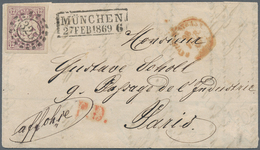 MÜNCHEN
27 FEB 1869 6
Monsieur
Gustave Scholl
9. Passage de l'Industrie
Paris.
P.D.